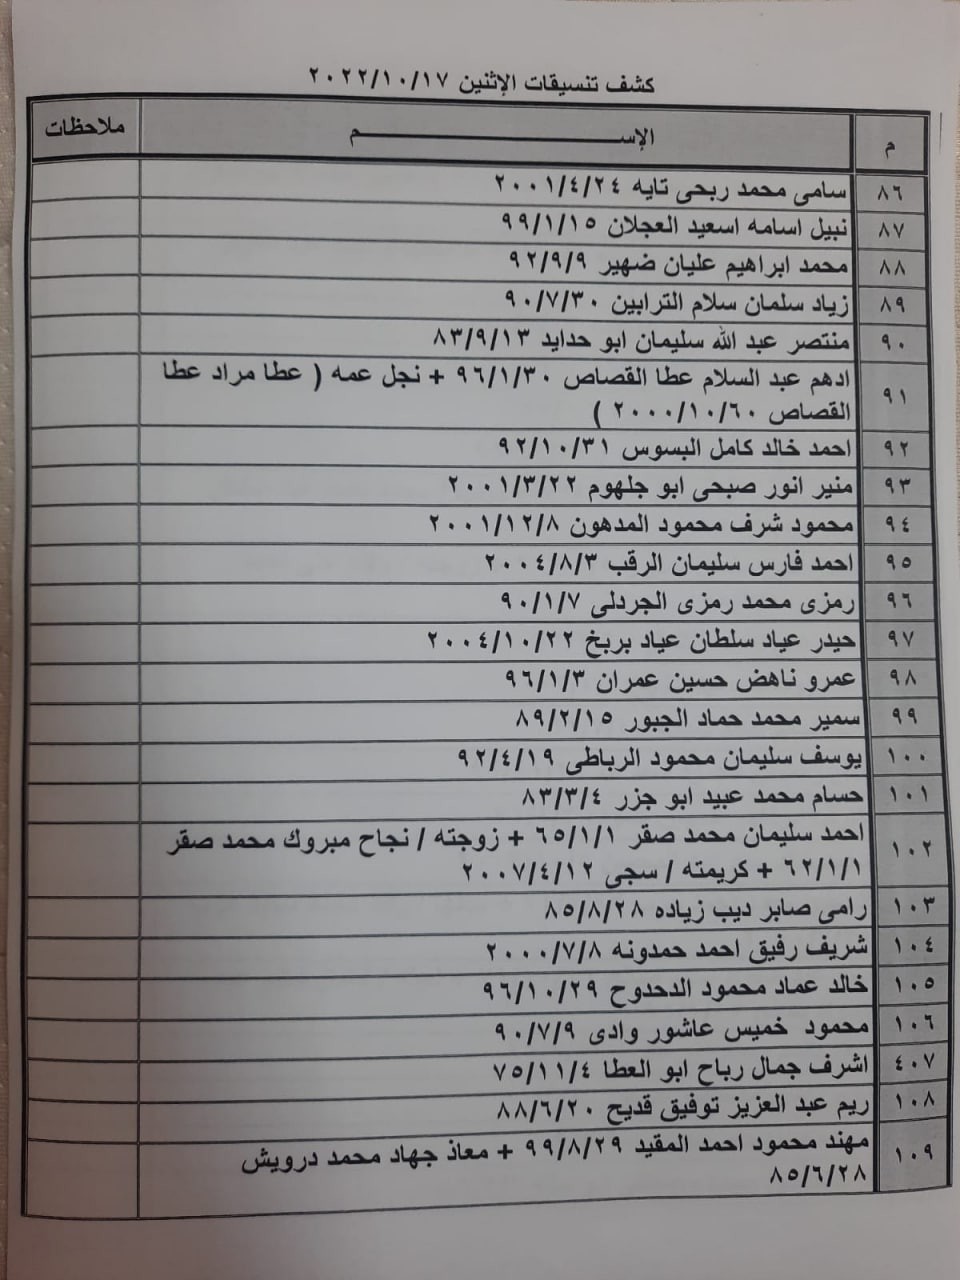 كشف تنسيقات الإثنين ٢٠٢٢/١٠/١٧
م الإســـــــــــــــــم ملاحظات
٨٦ سامى محمد ربحى تايه ٢٠٠١/٤/٢٤
٨٧ نبيل اسامه اسعيد العجلان ٩٩/١/١٥
٨٨ محمد ابراهيم عليان ضهير ٩٢/٩/٩
٨٩ زياد سلمان سلام الترابين ٩٠/٧/٣٠
٩٠ منتصر عبد الله سليمان ابو حدايد ٨٣/٩/١٣
٩١ ادهم عبد السلام عطا القصاص ٩٦/١/٣٠ + نجل عمه ( عطا مراد عطا
القصاص ٢٠٠٠/١٠/٦٠ )
٩٢ احمد خالد كامل البسوس ٩٢/١٠/٣١
٩٣ منير انور صبحى ابو جلهوم ٢٠٠١/٣/٢٢
٩٤ محمود شرف محمود المدهون ٢٠٠١/١٢/٨
٩٥ احمد فارس سليمان الرقب ٢٠٠٤/٨/٣
٩٦ رمزى محمد رمزى الجردلى ٩٠/١/٧
٩٧ حيدر عياد سلطان عياد بربخ ٢٠٠٤/١٠/٢٢
٩٨ عمرو ناهض حسين عمران ٩٦/١/٣
٩٩ سمير محمد حماد الجبور ٨٩/٢/١٥
١٠٠ يوسف سليمان محمود الرباطى ٩٢/٤/١٩
١٠١ حسام محمد عبيد ابو جزر ٨٣/٣/٤
١٠٢ احمد سليمان محمد صقر ٦٥/١/١ + زوجته / نجاح مبروك محمد صقر
٦٢/١/١ + كريمته / سجى ٢٠٠٧/٤/١٢
١٠٣ رامى صابر ديب زياده ٨٥/٨/٢٨
١٠٤ شريف رفيق احمد حمدونه ٢٠٠٠/٧/٨
١٠٥ خالد عماد محمود الدحدوح ٩٦/١٠/٢٩
١٠٦ محمود خميس عاشور وادى ٩٠/٧/٩
٤٠٧ اشرف جمال رباح ابو العطا ٧٥/١١/٤
١٠٨ ريم عبد العزيز توفيق قديح ٨٨/٦/٢٠
١٠٩ مهند محمود احمد المقيد ٩٩/٨/٢٩ + معاذ جهاد محمد درويش
٨٥/٦/٢٨